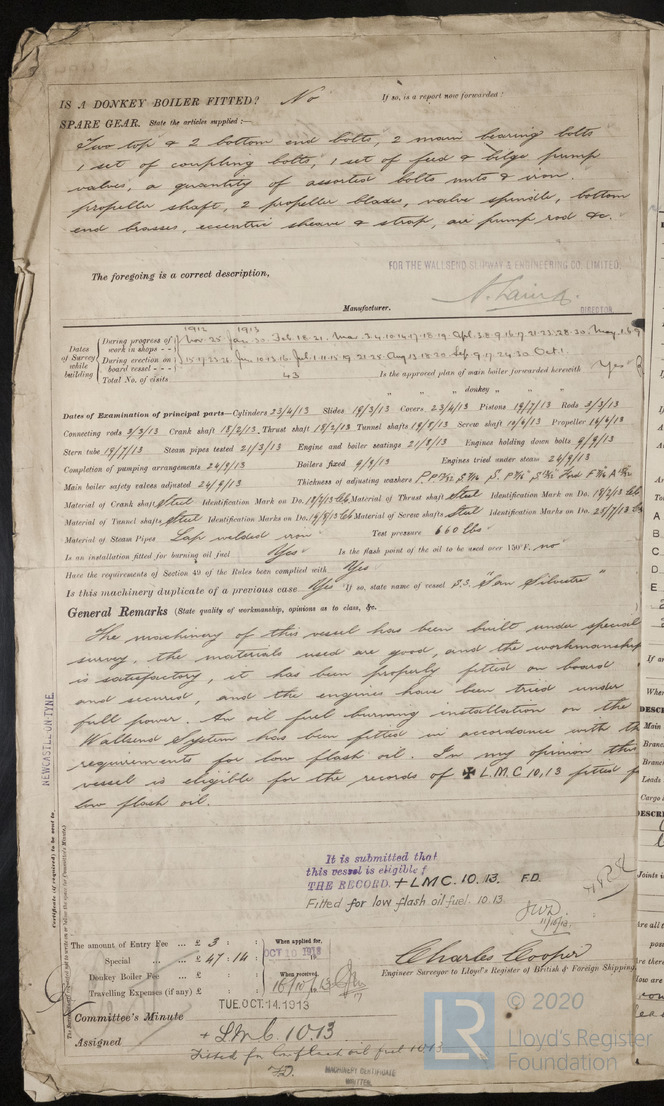 IS A DONKEY BOILER FITTED? No If so, is a report now forwarded?
SPARE GEAR. State the articles supplied:—
Two top & 2 bottom end bolts, 2 main bearing bolts
1 set of coupling bolts, 1 set of feed & bilge pump
valves, a quantity of assorted bolts nuts & iron.
propeller shaft, 2 propeller blades, valve spindle, bottom
end brasses, eccentric sheave & strap, air pump rod &c.
FOR THE WALLSEND SLIPWAY & ENGINEERING CO. LIMITED.
The foregoing is a correct description,
A. Laing
Manufacturer. DIRECTOR
1912 1913
Dates of Survey while building
During progress of work in shops - - Nov. 25 Jan. 30 Feb. 18. 21. Mar. 3.4.10.14.17.18.19. Apl. 3.8.9.16.17.21.23.28.30. May 1.6.9
During erection on board vessel - - - Jun. 10.13.16. Jul. Aug 13.18.20. Sep. 9.17.24.30 Oct. 1.
Total No. of visits 43 Is the approved plan of main boiler forwarded herewith Yes
" " " donkey " " "
Dates of Examination of principal parts—Cylinders 23/4/13 Slides 19/3/13 Covers 23/4/13 Pistons 19/7/13 Rods 3/3/13
Connecting rods 3/3/13 Crank shaft 18/2/13 Thrust shaft 18/2/13 Tunnel shafts 19/8/13 Screw shaft 10/4/13 Propeller 14/4/13
Stern tube 19/7/13 Steam pipes tested 21/3/13 Engine and boiler seatings 21/8/13 Engines holding down bolts 9/9/13
Completion of pumping arrangements 24/9/13 Boilers fixed 9/9/13 Engines tried under steam 24/9/13
Main boiler safety valves adjusted 24/9/13 Thickness of adjusting washers
Material of Crank shaft Steel Identification Mark on Do. 18/2/13 Material of Thrust shaft Steel Identification Mark on Do. 18/2/13
Material of Tunnel shafts Steel Identification Marks on Do. 19/8/13 Material of Screw shafts Steel Identification Marks on Do. 25/7/13
Material of Steam Pipes Lap welded iron Test pressure 660 lbs
Is an installation fitted for burning oil fuel Yes Is the flash point of the oil to be used over 150°F. no
Have the requirements of Section 49 of the Rules been complied with Yes
Is this machinery duplicate of a previous case Yes If so, state name of vessel S.S. "San Silvestre"
General Remarks (State quality of workmanship, opinions as to class, &c.
The machinery of this vessel has been built under special
survey, the materials used are good, and the workmanship
is satisfactory, it has been properly fitted on board
and secured, and the engines have been tried under
full power. An oil fuel burning installation on the
Wallsend System has been fitted in accordance with th
requirements for low flash oil. In my opinion this
vessel is eligible for the records of ✠ L.M.C 10,13 fitted f
low flash oil.
NEWCASTLE-ON-TYNE.
Certificate (if required) to be sent to
It is submitted that
this vessel is eligible f
THE RECORD. + LMC. 10. 13. F.D.
Fitted for low flash oil fuel. 10.13.
The amount of Entry Fee ... £ 3 : :
Special ... ... £ 47 : 14 :
Donkey Boiler Fee ... £ : :
Travelling Expenses (if any) £ : :
When applied for,
OCT 10 1913
When received,
16/10/13
Charles Cooper
Engineer Surveyor to Lloyd's Register of British & Foreign Shipping.
TUE. OCT. 14. 1913
Committee's Minute
Assigned + LMC. 10.13
Fitted for low flash oil fuel 10.13
F.D.
MACHINERY CERTIFICATE
WRITTEN.
© 2020
LR Lloyd's Register
Foundation